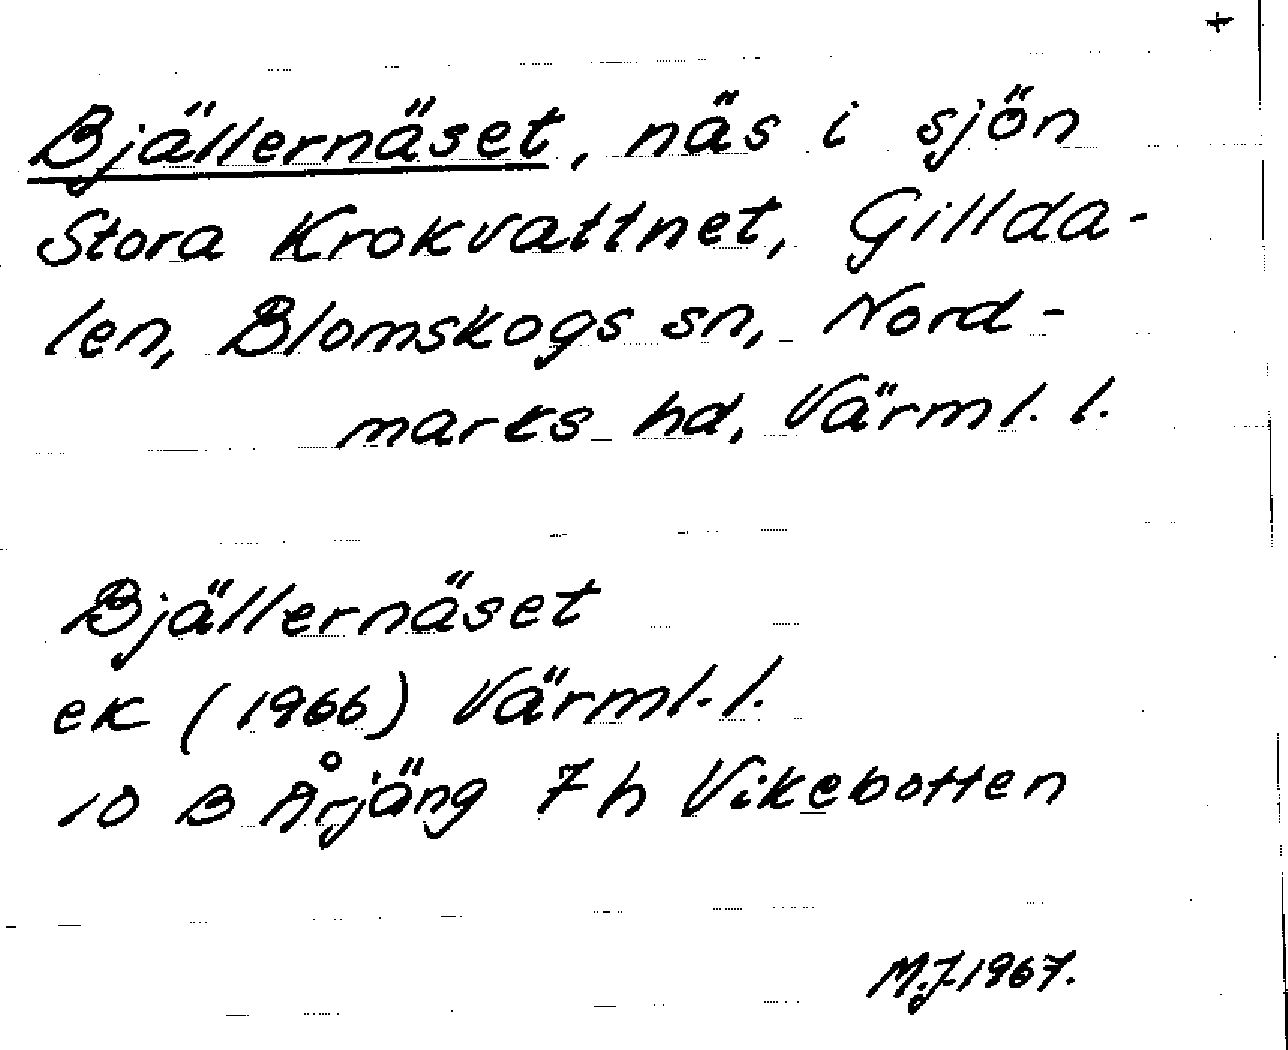 +
Bjällernäset, näs i sjön
Stora Krokvattnet, Gillda-
len, Blomskogs sn, Nord-
marks hd, Värml. l.
Bjällernäset
ek (1966) Värml. l.
10 B Årjäng 7 h Vikebotten
M.J. 1967.